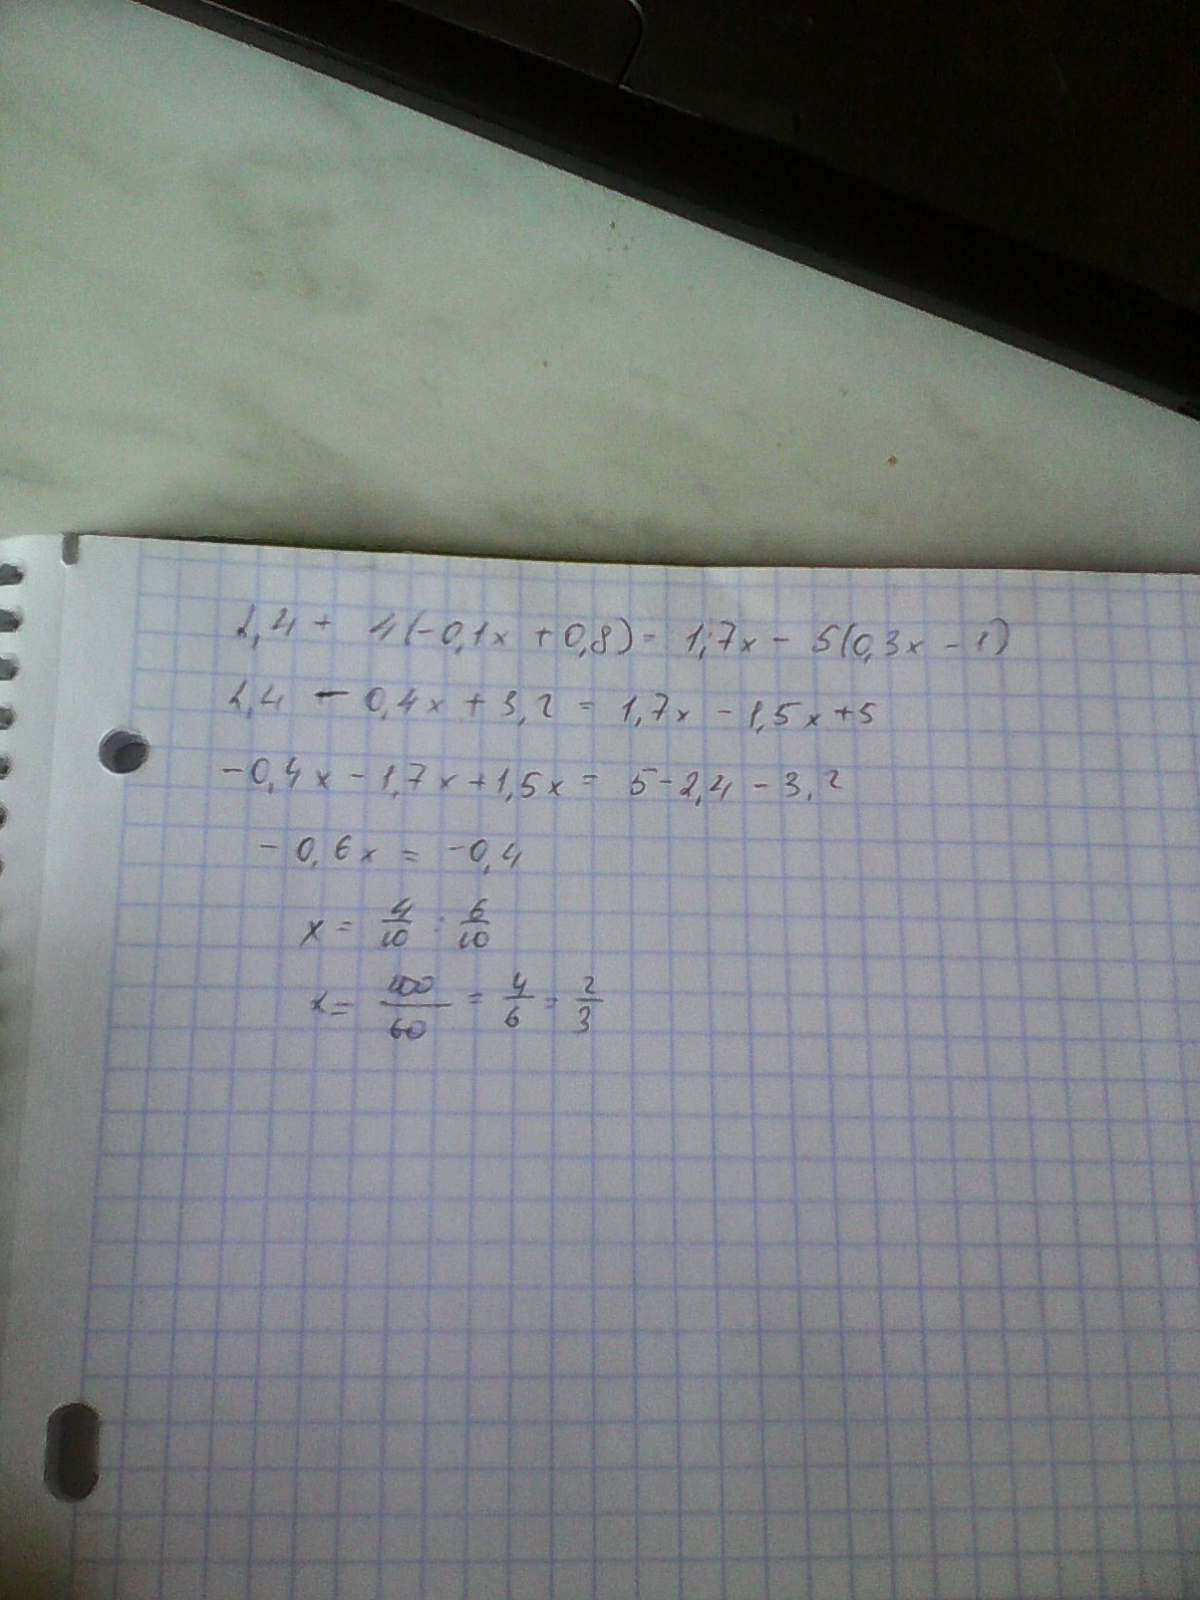 2,4 + 4(-0,1x + 0,8) = 1,7x - 5(0,3x - 1)
2,4 - 0,4x + 3,2 = 1,7x - 1,5x + 5
-0,4x - 1,7x + 1,5x = 5 - 2,4 - 3,2
-0,6x = -0,4
x = 4/10 : 6/10
x = 400/60 = 4/6 = 2/3